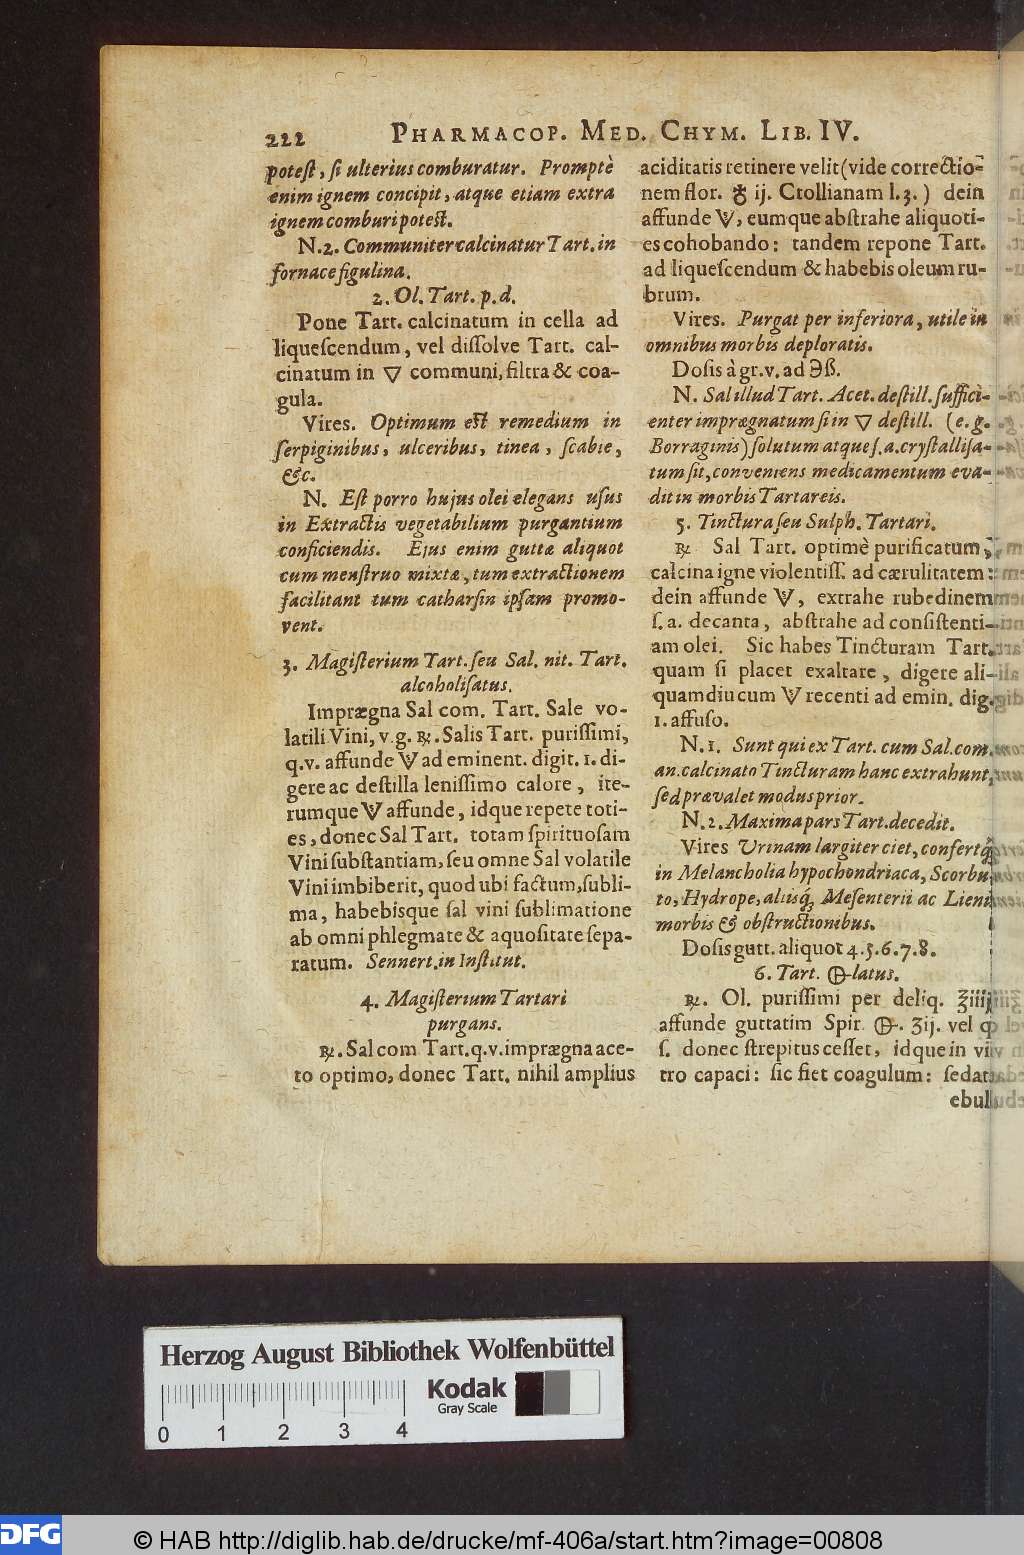 222 PHARMACOP. MED. CHYM. LIB. IV.
poteſt, ſi ulterius comburatur. Promptè
enim ignem concipit, atque etiam extra
ignem comburi poteſt.
N. 2. Communiter calcinatur Tart. in
fornace figulina.
2. Ol. Tart. p. d.
Pone Tart. calcinatum in cella ad
liqueſcendum, vel diſſolve Tart. cal-
cinatum in ▽ communi, filtra & coa-
gula.
Vires. Optimum eſt remedium in
ſerpiginibus, ulceribus, tinea, ſcabie,
&c.
N. Eſt porro hujus olei elegans uſus
in Extractis vegetabilium purgantium
conficiendis. Ejus enim guttæ aliquot
cum menſtruo mixtæ, tum extractionem
facilitant tum catharſin ipſam promo-
vent.
3. Magiſterium Tart. ſeu Sal. nit. Tart.
alcoholiſatus.
Imprægna Sal com. Tart. Sale vo-
latili Vini, v. g. ℞. Salis Tart. puriſſimi,
q. v. affunde V ad eminent. digit. 1. di-
gere ac deſtilla leniſſimo calore, ite-
rumque V affunde, idque repete toti-
es, donec Sal Tart. totam ſpirituoſam
Vini ſubſtantiam, ſeu omne Sal volatile
Vini imbiberit, quod ubi factum, ſubli-
ma, habebisque ſal vini ſublimatione
ab omni phlegmate & aquoſitate ſepa-
ratum. Sennert. in Inſtitut.
4. Magiſterium Tartari
purgans.
℞. Sal com Tart. q. v. imprægna ace-
to optimo, donec Tart. nihil amplius
aciditatis retinere velit (vide correctio-
nem flor. ij. Crollianam l. 3.) dein
affunde V, eumque abſtrahe aliquoti-
es cohobando: tandem repone Tart.
ad liqueſcendum & habebis oleum ru-
brum.
Vires. Purgat per inferiora, utile in
omnibus morbis deploratis.
Doſis à gr. v. ad ℈ß.
N. Sal illud Tart. Acet. deſtill. ſuffici-
enter imprægnatum ſi in ▽ deſtill. (e. g.
Borraginis) ſolutum atque ſ. a. cryſtalliſa-
tum ſit, conveniens medicamentum eva-
dit in morbis Tartareis.
5. Tinctura ſeu Sulph. Tartari.
℞ Sal Tart. optimè purificatum,
calcina igne violentiſſ. ad cæruliatem:
dein affunde V, extrahe rubedinem
ſ. a. decanta, abſtrahe ad conſiſtenti-
am olei. Sic habes Tincturam Tart.
quam ſi placet exaltare, digere ali-
quamdiu cum V recenti ad emin. dig.
1. affuſo.
N. 1. Sunt qui ex Tart. cum Sal. com.
an. calcinato Tincturam hanc extrahunt,
ſed prævalet modus prior.
N. 2. Maxima pars Tart. decedit.
Vires Urinam largiter ciet, confertq́;
in Melancholia hypochondriaca, Scorbu-
to, Hydrope, aliisq́; Meſenterii ac Lienis
morbis & obſtructionibus.
Doſis gutt. aliquot 4. 5. 6. 7. 8.
6. Tart. latus.
℞. Ol. puriſſimi per deliq. ℥iiij
affunde guttatim Spir. ʒij. vel q
ſ. donec ſtrepitus ceſſet, idque in vi-
tro capaci: ſic fiet coagulum: ſedata
ebul
Herzog August Bibliothek Wolfenbüttel
Kodak
Gray Scale
0 1 2 3 4
DFG © HAB http://diglib.hab.de/drucke/mf-406a/start.htm?image=00808